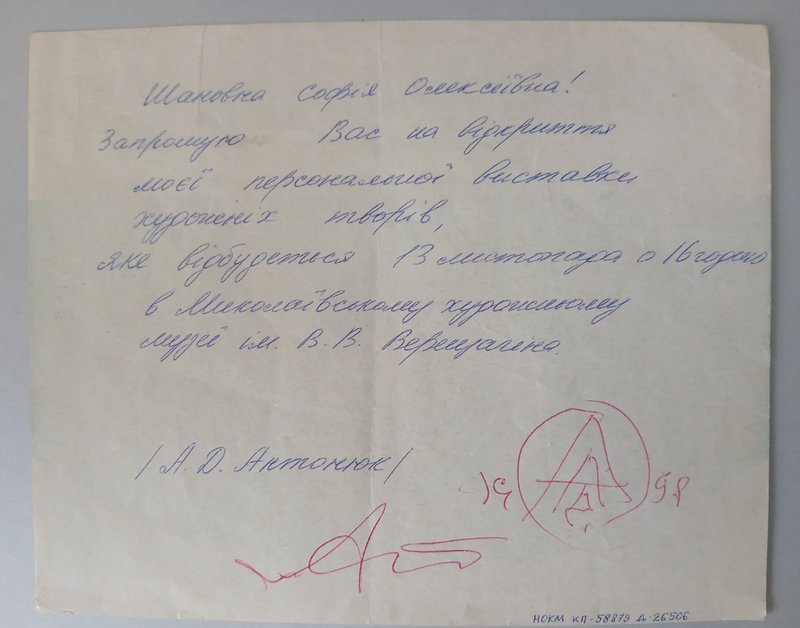 Шановна Софія Олексіївна!
Запрошую Вас на відкриття
моєї персональної виставки
художніх творів,
яке відбудеться 13 листопада о 16 годині
в Миколаївському художньому
музеї ім. В. В. Верещагіна.
/ А. Д. Антонюк /
19 АД 98
НОКМ КП-58879 Д-26506